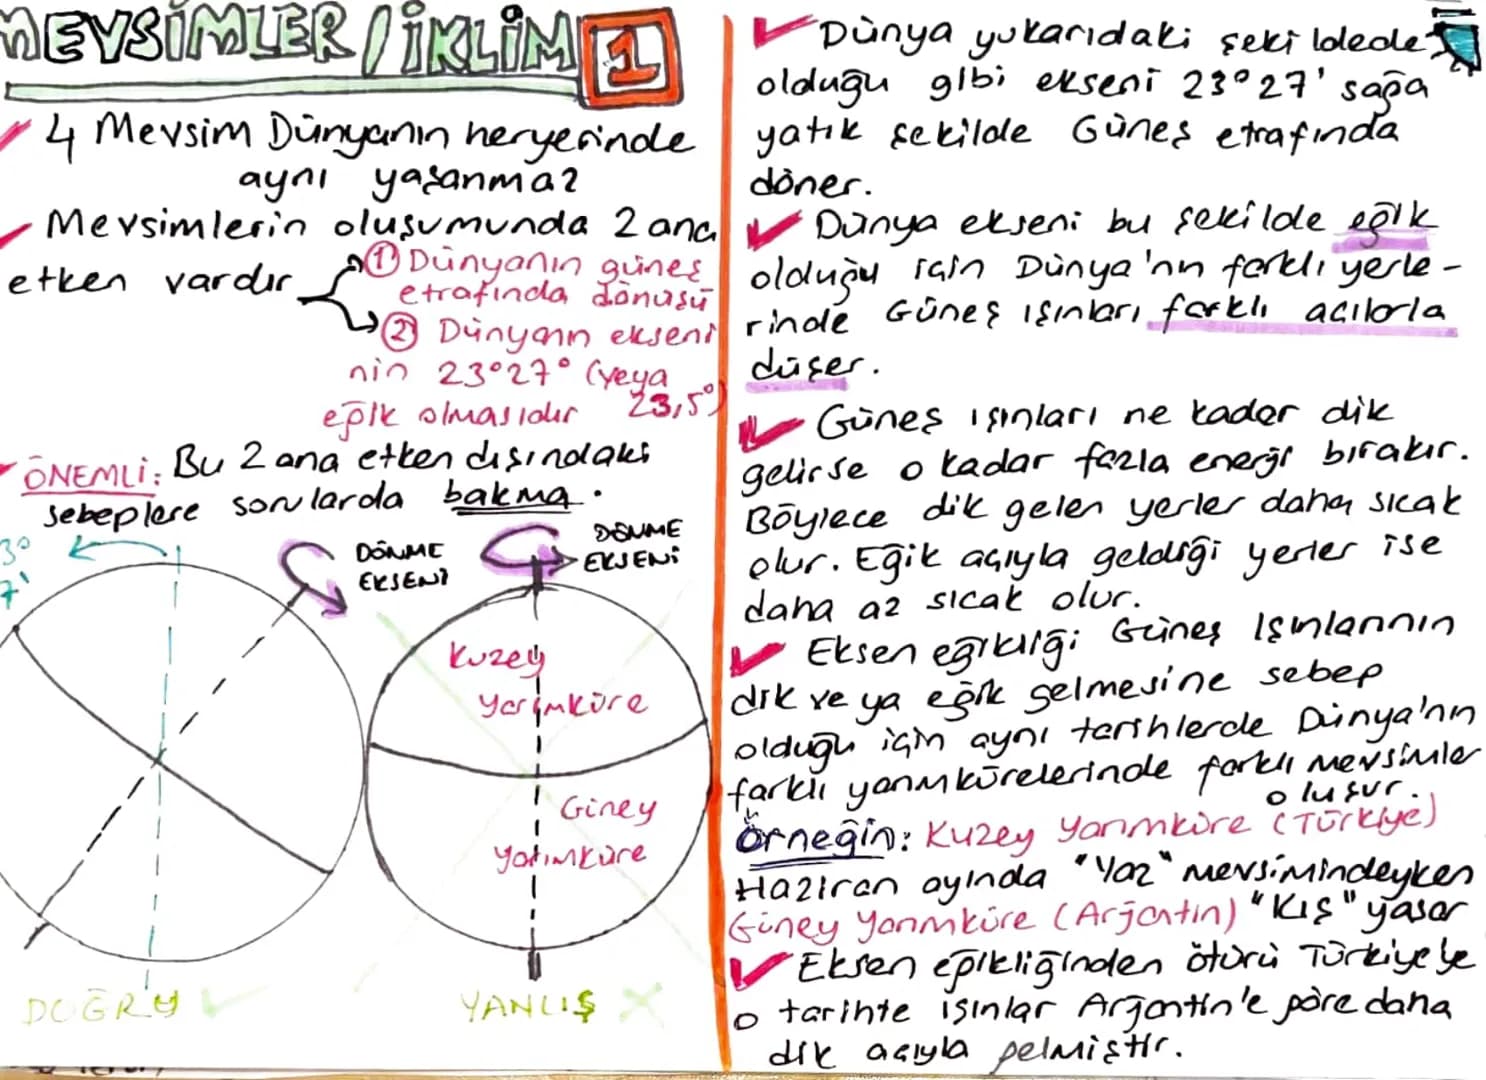 MEVSİMLER / İKLİM 1
4 Mevsim Dünyanın heryerinde
aynı yaşanmaz
Mevsimlerin oluşumunda 2 ana
etken vardır
① Dünyanın güneş
etrafında dönüşü
② Dünyanın ekseni
nin 23°27° (veya
23,5°)
eğik olmasıdır
ÖNEMLİ: Bu 2 ana etken dışındaki
sebeplere sorularda bakma.
3°
7'
DÖNME
EKSENİ
DÖNME
EKSENİ
Kuzey
Yarımküre
Güney
Yarımküre
DOĞRU ✓
YANLIŞ X
Dünya yukarıdaki şekildede
olduğu gibi ekseni 23°27' sağa
yatık şekilde Güneş etrafında
döner.
Dünya ekseni bu şekilde eğik
olduğu için Dünya'nın farklı yerle-
rinde Güneş ışınları farklı açılarla
düşer.
Güneş ışınları ne kadar dik
gelirse o kadar fazla enerji bırakır.
Böylece dik gelen yerler daha sıcak
olur. Eğik açıyla geldiği yerler ise
daha az sıcak olur.
Eksen eğikliği Güneş Işınlarının
dik ve ya eğik gelmesine sebep
olduğu için aynı tarihlerde Dünya'nın
farklı yarımkürelerinde farklı mevsimler
oluşur.
Örneğin: Kuzey Yarımküre (Türkiye)
Haziran ayında "Yaz" mevsimindeyken
Güney Yarımküre (Arjantin) "Kış" yaşar
Eksen eğikliğinden ötürü Türkiye'ye
o tarihte ışınlar Arjantin'e göre daha
dik açıyla gelmiştir.